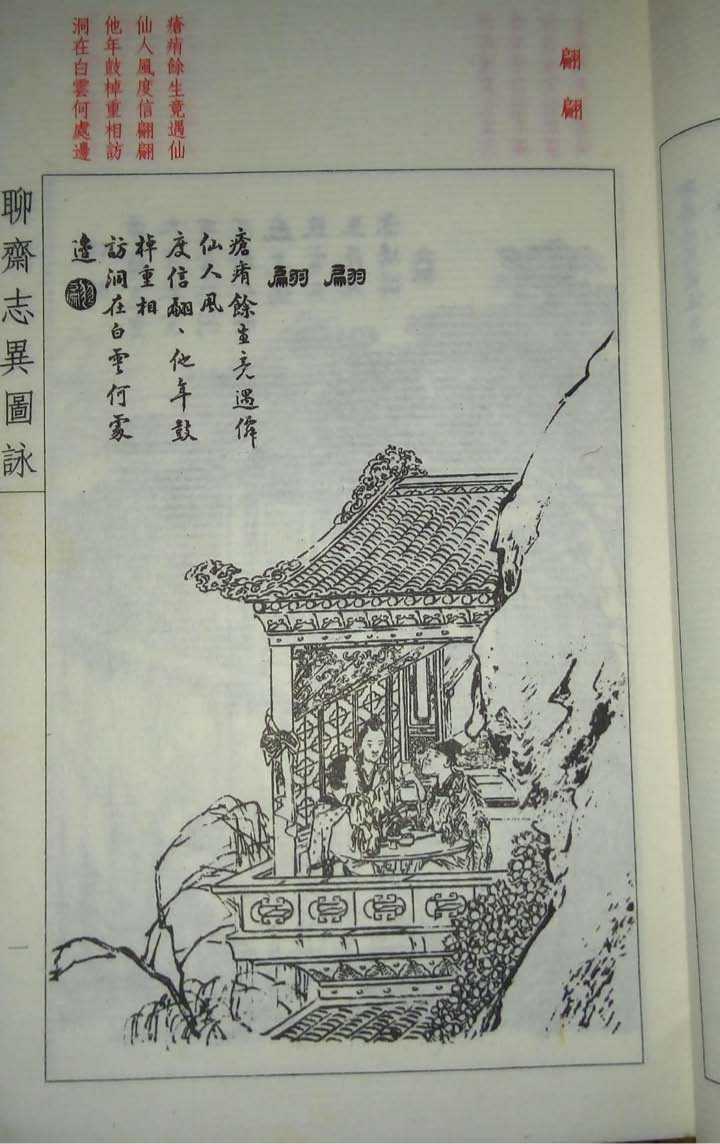 翩翩
瘡痏餘生竟遇仙
仙人風度信翩翩
他年鼓棹重相訪
洞在白雲何處邊
翩翩
瘡痏餘生竟遇僊
仙人風
度信翩丶他年鼓
棹重相
訪洞在白雲何處
邊
聊齋志異圖詠
一